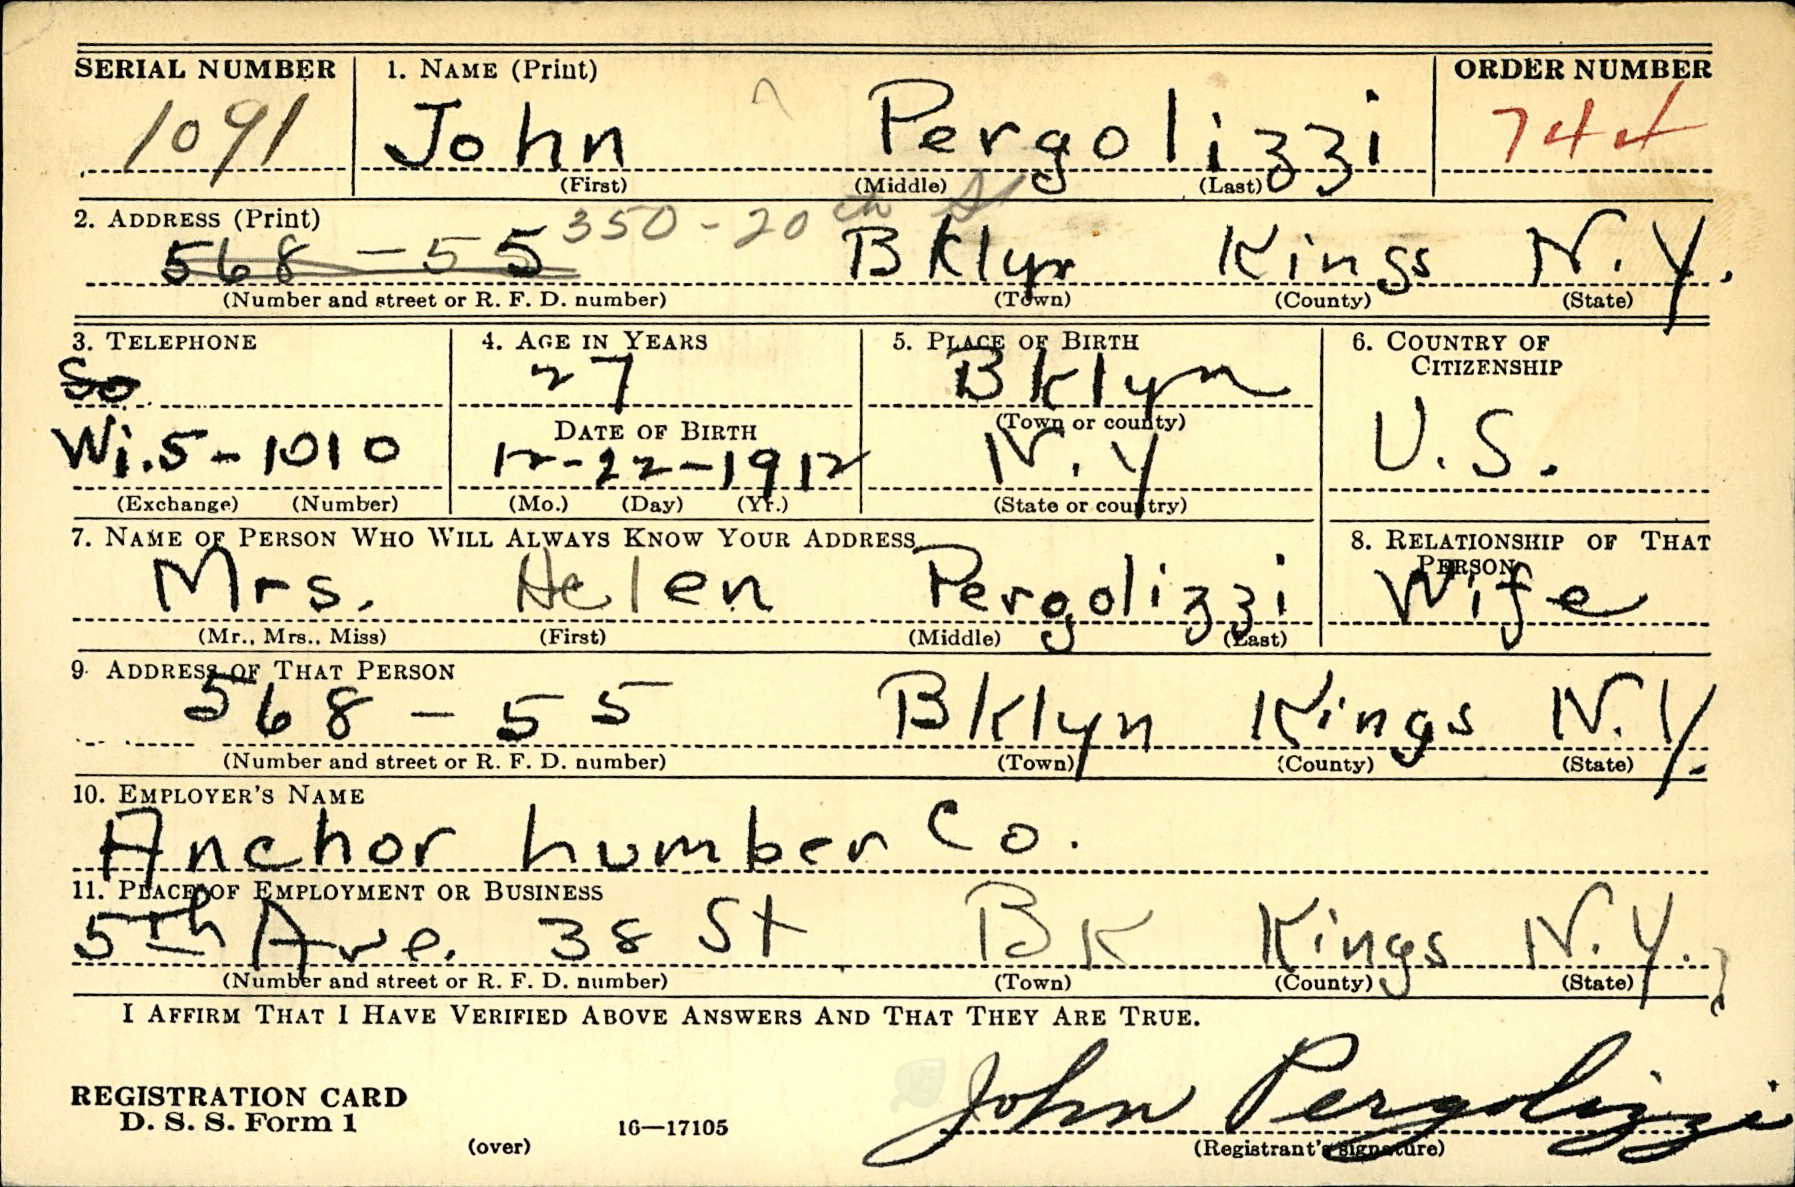 SERIAL NUMBER 1. NAME (Print) ORDER NUMBER
1091 John Pergolizzi 744
(First) (Middle) (Last)
2. ADDRESS (Print) 350-20th St
568-55 Bklyn Kings N.Y.
(Number and street or R. F. D. number) (Town) (County) (State)
3. TELEPHONE 4. AGE IN YEARS 5. PLACE OF BIRTH 6. COUNTRY OF CITIZENSHIP
So 27 Bklyn U.S.
DATE OF BIRTH (Town or county)
Wi.5-1010 12-22-1912 N.Y
(Exchange) (Number) (Mo.) (Day) (Yr.) (State or country)
7. NAME OF PERSON WHO WILL ALWAYS KNOW YOUR ADDRESS 8. RELATIONSHIP OF THAT PERSON
Mrs. Helen Pergolizzi Wife
(Mr., Mrs., Miss) (First) (Middle) (Last)
9. ADDRESS OF THAT PERSON
568-55 Bklyn Kings N.Y.
(Number and street or R. F. D. number) (Town) (County) (State)
10. EMPLOYER'S NAME
Anchor Lumber Co.
11. PLACE OF EMPLOYMENT OR BUSINESS
5th Ave. 38 St BK Kings N.Y.
(Number and street or R. F. D. number) (Town) (County) (State)
I AFFIRM THAT I HAVE VERIFIED ABOVE ANSWERS AND THAT THEY ARE TRUE.
John Pergolizzi
REGISTRATION CARD
D. S. S. Form 1 16—17105 (Registrant's signature)
(over)